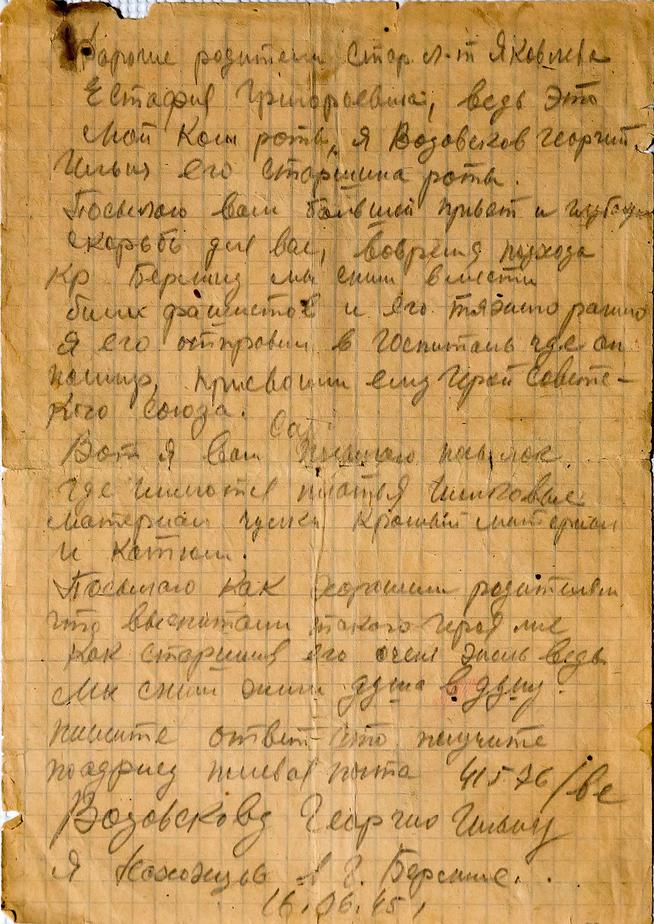 Дорогие родители Стар. л-т Яковлева
Естафия Григорьевича, ведь это
мой Ком роты, я Возовсков Георгий
Ильич его старшина роты.
Посылаю вам большой привет и
скорбь для вас, вовремя подхода
кр Берлину мы сним вмести
били фашистов и его тяжило ранило
Я его отправил в госпиталь где он
помир, присвоили ему Герой Советс-
кого Союза.
Вот я вам посылаю
где имеются платья шолковые
материал чулки Красный материал
и Катюм.
Посылаю как хорошим родителям
что воспитали такого героя мне
как старшине его очень жаль ведь
мы сним жили душа в душу.
пишите ответ что получите
поадрису полевая почта 41576/ве
Возовскову Георгию Ильичу
Я нахожусь в г. Берлине.
16.06.45.